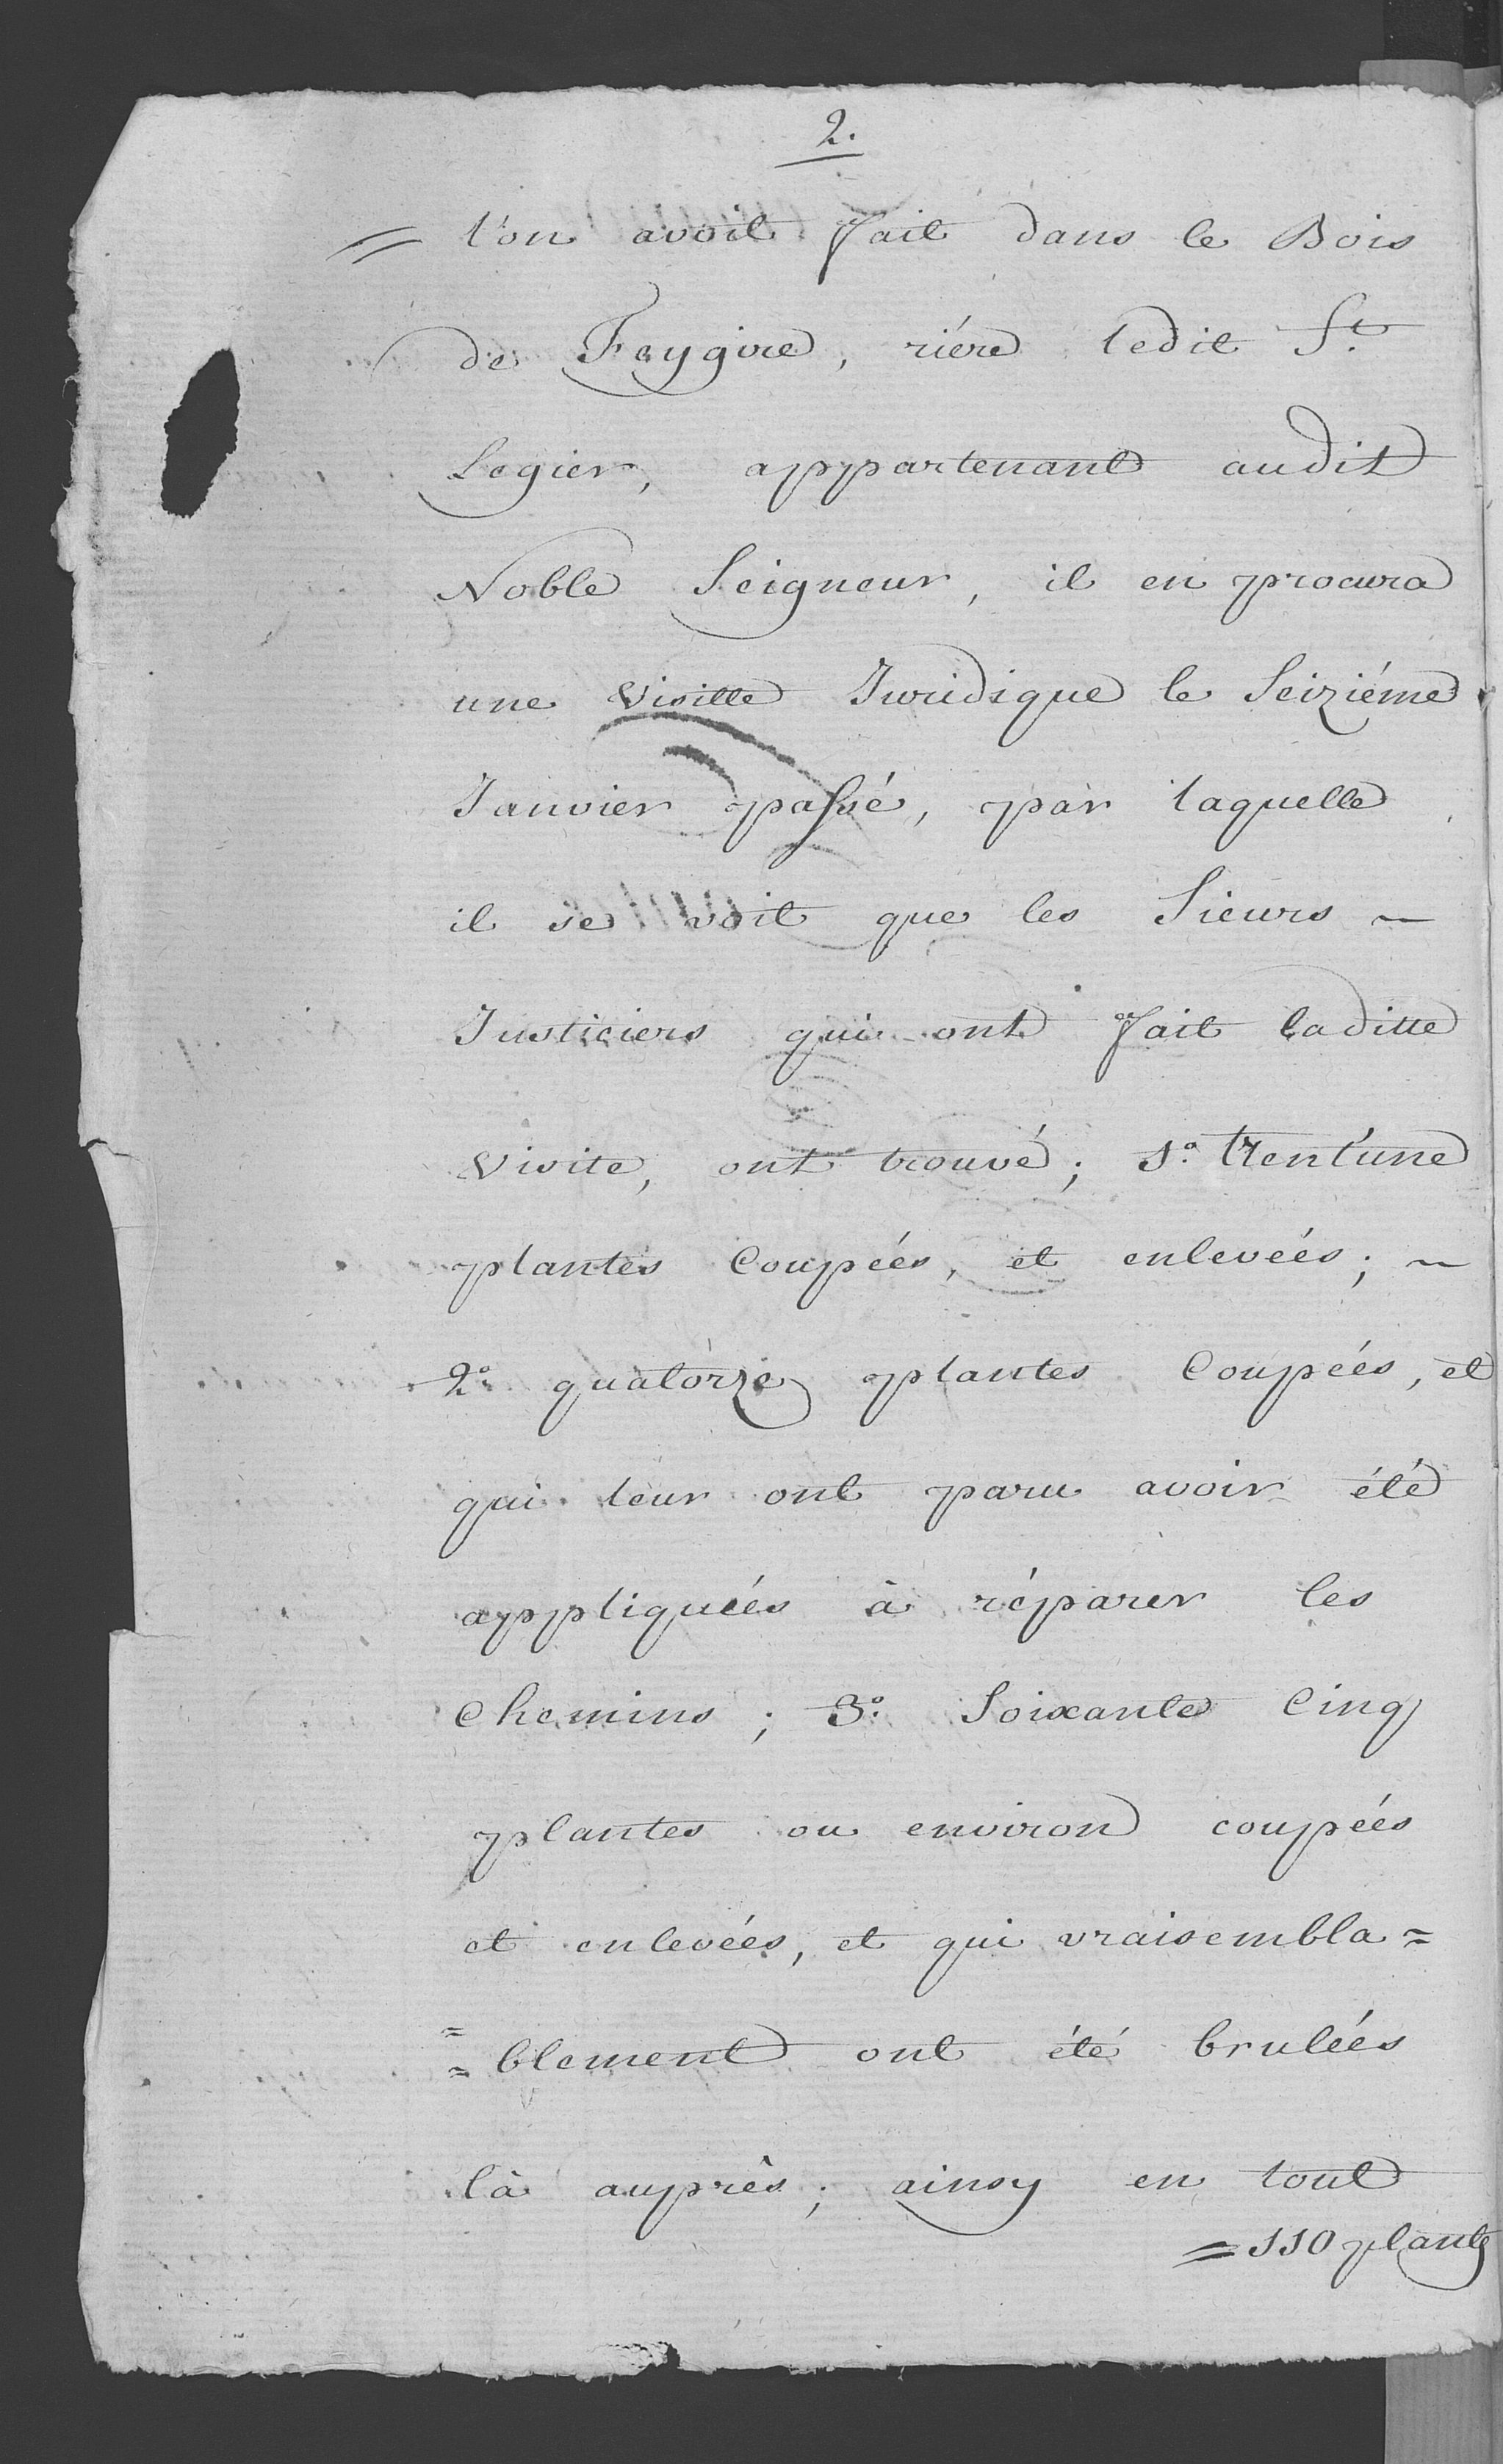 2.
= l'on avoit fait dans le Bois
de Feygire, riére ledit St.
Legier, appartenant audit
Noble Seigneur, il en procura
une visitte Juridique le Seiziéme
Janvier passé, par laquelle
il se voit que les Sieurs ~
Justiciers qui ont fait laditte
visite, ont trouvé; 1º. trent'une
plantes Coupées, et enlevées; ~
2º. quatorze plantes Coupées, et
qui leur ont paru avoir été
appliquées à réparer les
Chemins; 3º. Soixante Cinq
plantes ou environ coupées
et enlevées, et qui vraisembla=
=blement ont été brulées
là auprès; ainsy en tout
= 110 plantes